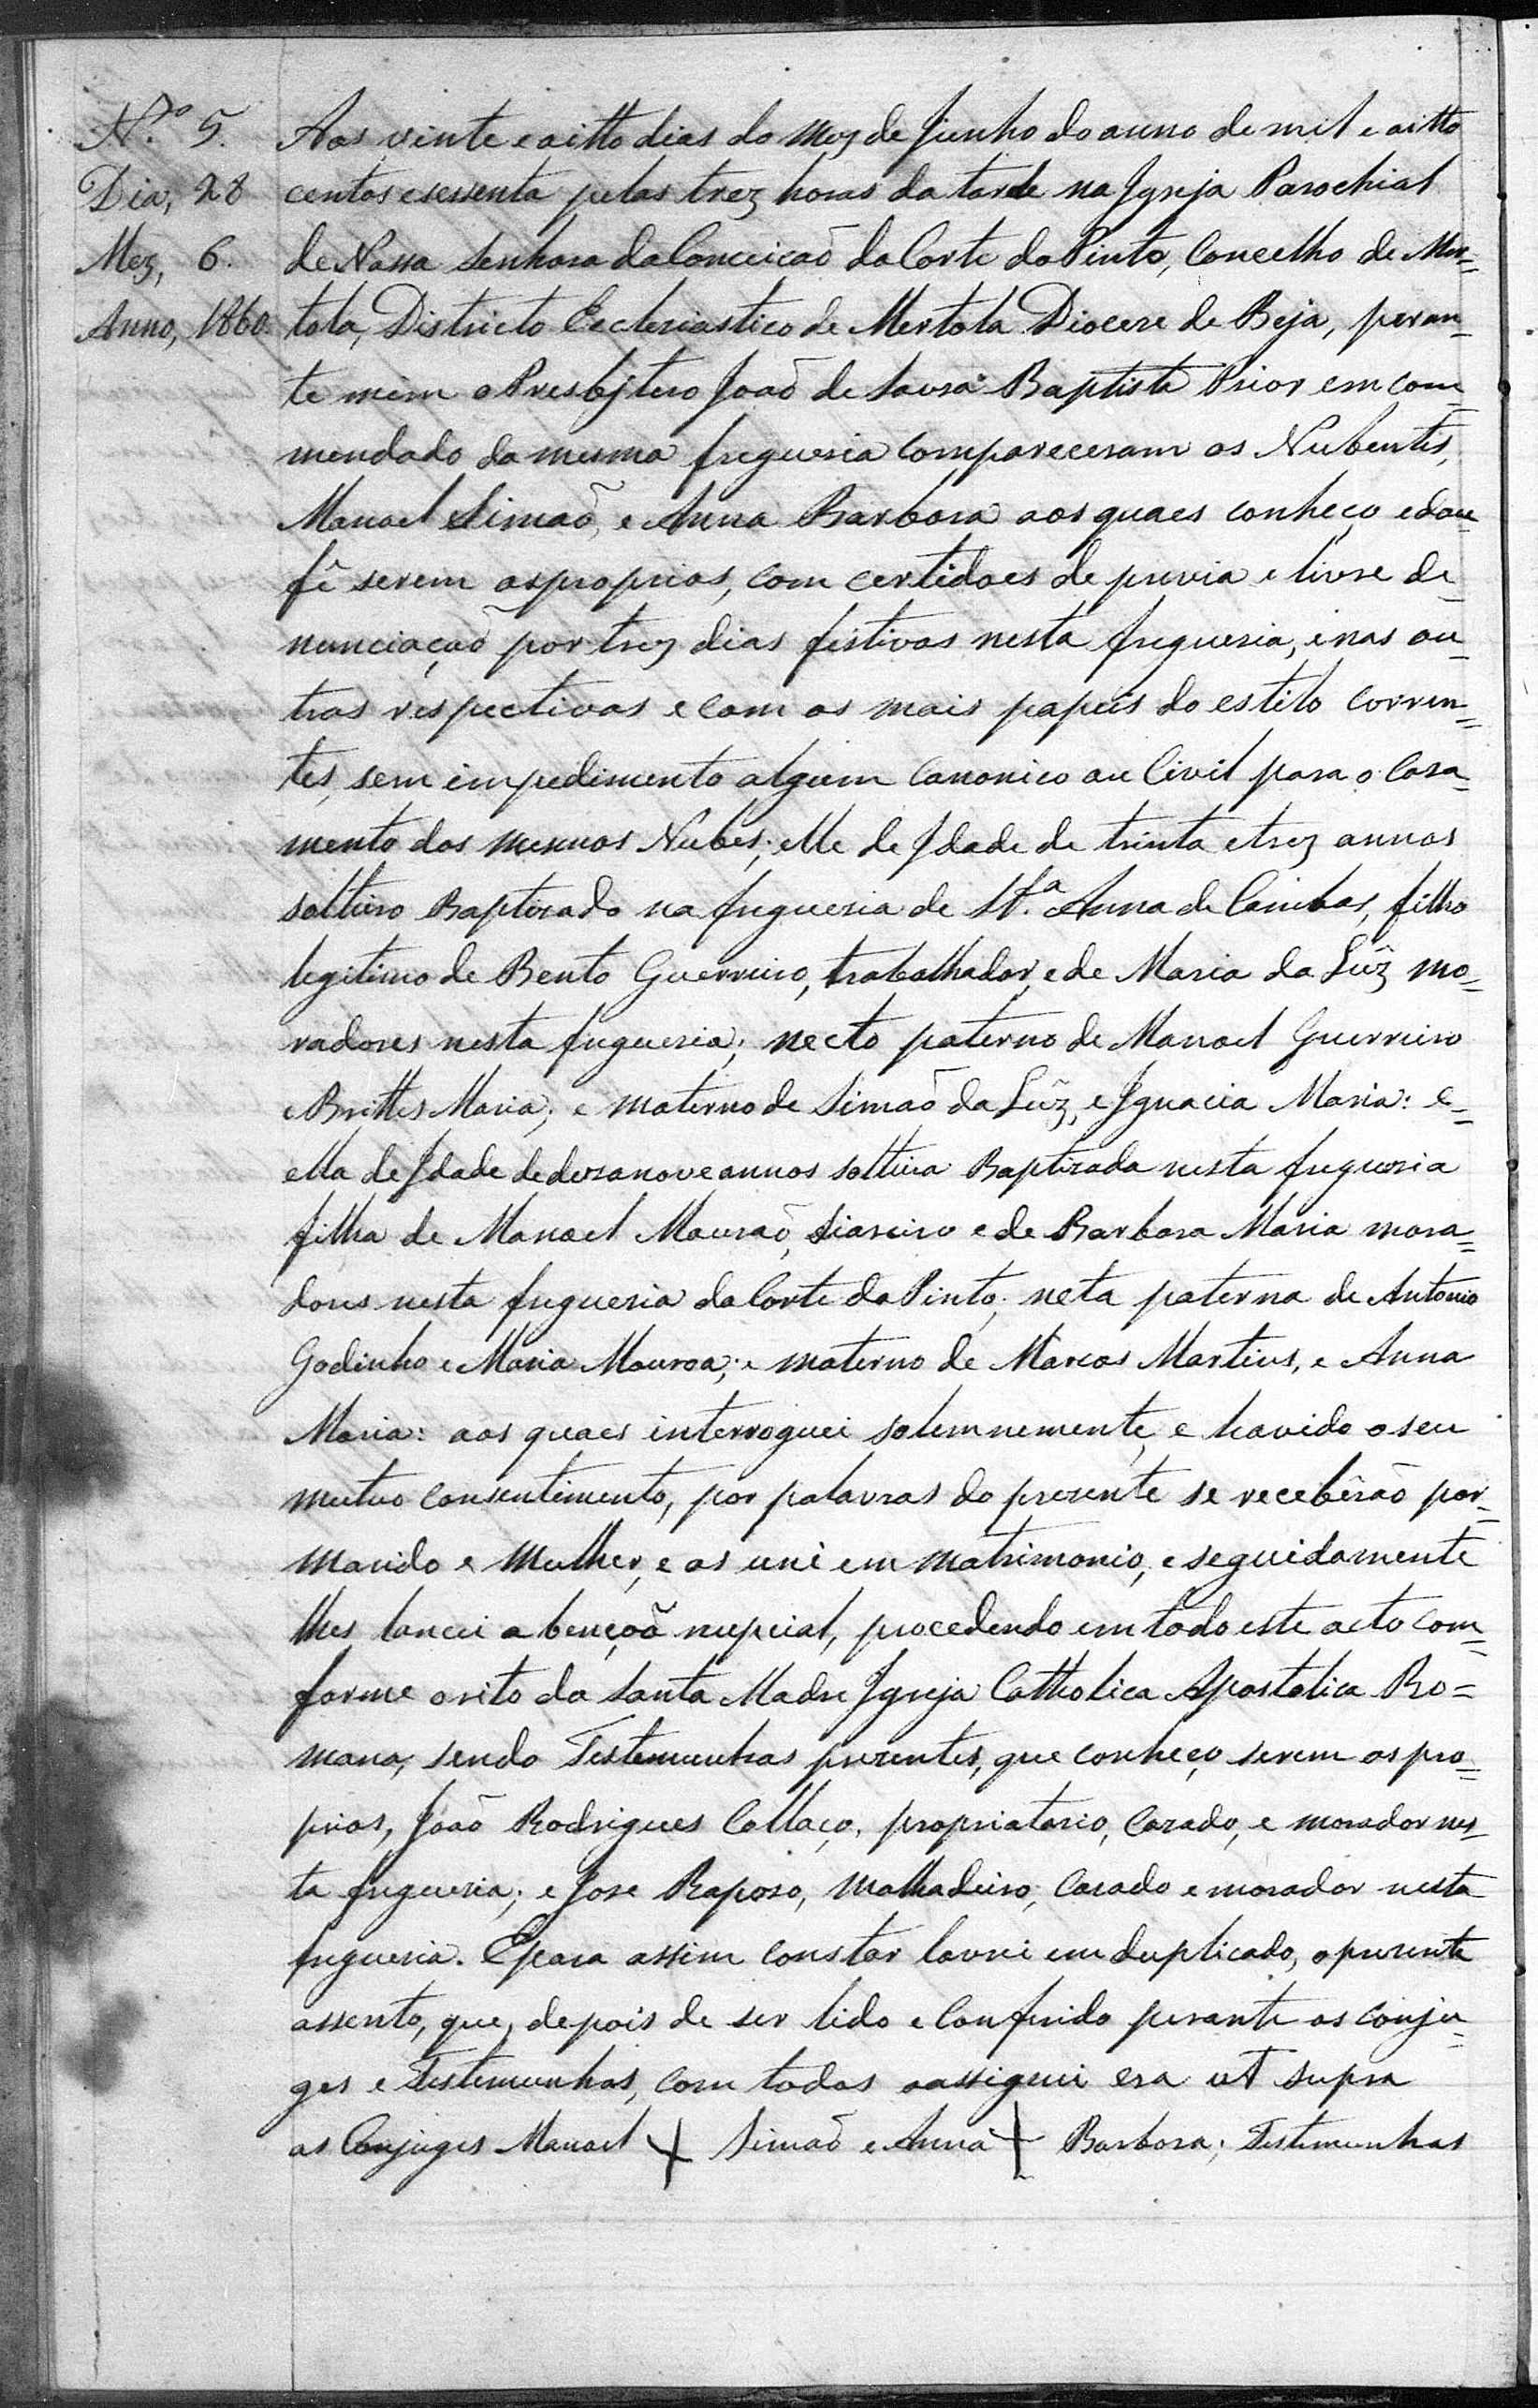 N.º 5.
Dia, 28
Mez, 6.
Anno, 1860.
Aos vinte e oitto dias do Mez de Junho do anno de mil e oitto
centos e sessenta pelas trez horas da tarde na Igreja Parochial
de Nossa Senhora da Conceicaõ da Corte do Pinto, Concelho de Mer=
tola, Districto Ecclesiastico de Mertola Diocese de Beja, peran=
te mim o Presbjtero Joaõ de Sousa Baptista Prior emcom=
mendado da mesma freguesia compareceram os Nubentes,
Manoel Simaõ, e Anna Barbora aos quaes conheço e dou
fê serem os proprios, com certidoes de previa e livre de=
nunciaçaõ por trez dias festivos nesta freguesia, e nas ou=
tras respectivas e com os mais papeis do estilo corren=
tes, sem impedimento algum Canonico ou Civil para o Casa=
mento dos mesmos Nubes; elle de Idade de trinta e trez annos
solteiro Baptizado na freguesia de St.ª Anna de Cambas, filho
legitimo de Bento Guerreiro, trabalhador, e de Maria da Lûz mo=
radores nesta freguesia; necto paterno de Manoel Guerreiro
e Brittes Maria; e materno de Simaõ da Lûz, e Ignacia Maria: e=
ella de Idade de dezanove annos solteira Baptizada nesta freguesia
filha de Manoel Mouraõ, Siareiro e de Barbora Maria mora=
dores nesta freguesia da Corte do Pinto; neta paterna de Antonio
Godinho e Maria Mouroa; e materno de Marcos Martins, e Anna
Maria: aos quaes interroguei solemnemente, e havido o seu
mutuo consentimento, por palavras do prezente se recebêraõ por=
Marido e Mulher, e os uni em Matrimonio, e seguidamente
lhes lancei a bençoã nupcial, procedendo em todo este acto com=
forme o rito da Santa Madre Igreja Catholica Apostolica Ro=
mana, sendo Testemunhas prezentes, que conheço serem os pro=
prios, Joaõ Rodrigues Collaço, propriatario, Cazado, e morador nes=
ta freguesia; e Jose Raposo, Malhadeiro, Casado e morador nesta
freguesia. E para assim constar lavrei em duplicado, o prezente
assento, que, depois de ser lido e Conferido perante os conju=
ges e Testemunhas, com todos o assignei era ut supra
os Conjuges Manoel + Simaõ e Anna + Barbora; Testemunhas